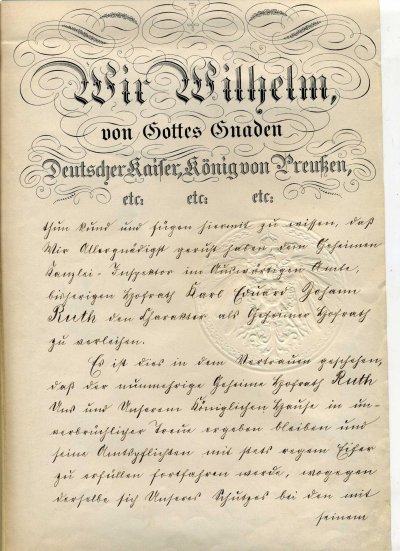 Wir Wilhelm,
von Gottes Gnaden
Deutscher Kaiser, König von Preußen,
etc: etc: etc:
thun kund und fügen hiermit zu wissen, daß
Wir Allergnädigst geruht haben, dem Geheimen
Kanzlei-Inspektor im Auswärtigen Amte,
bisherigen Hofrath Karl Eduard Johann
Ruth den Charakter als Geheimer Hofrath
zu verleihen.
Es ist dies in dem Vertrauen geschehen,
daß der nunmehrige Geheime Hofrath Ruth
Uns und Unserem Königlichen Hause in un-
verbrüchlicher Treue ergeben bleiben und
seine Amtspflichten mit stets regem Eifer
zu erfüllen fortfahren werde, wogegen
derselbe sich Unseres Schutzes bei den mit
seinem